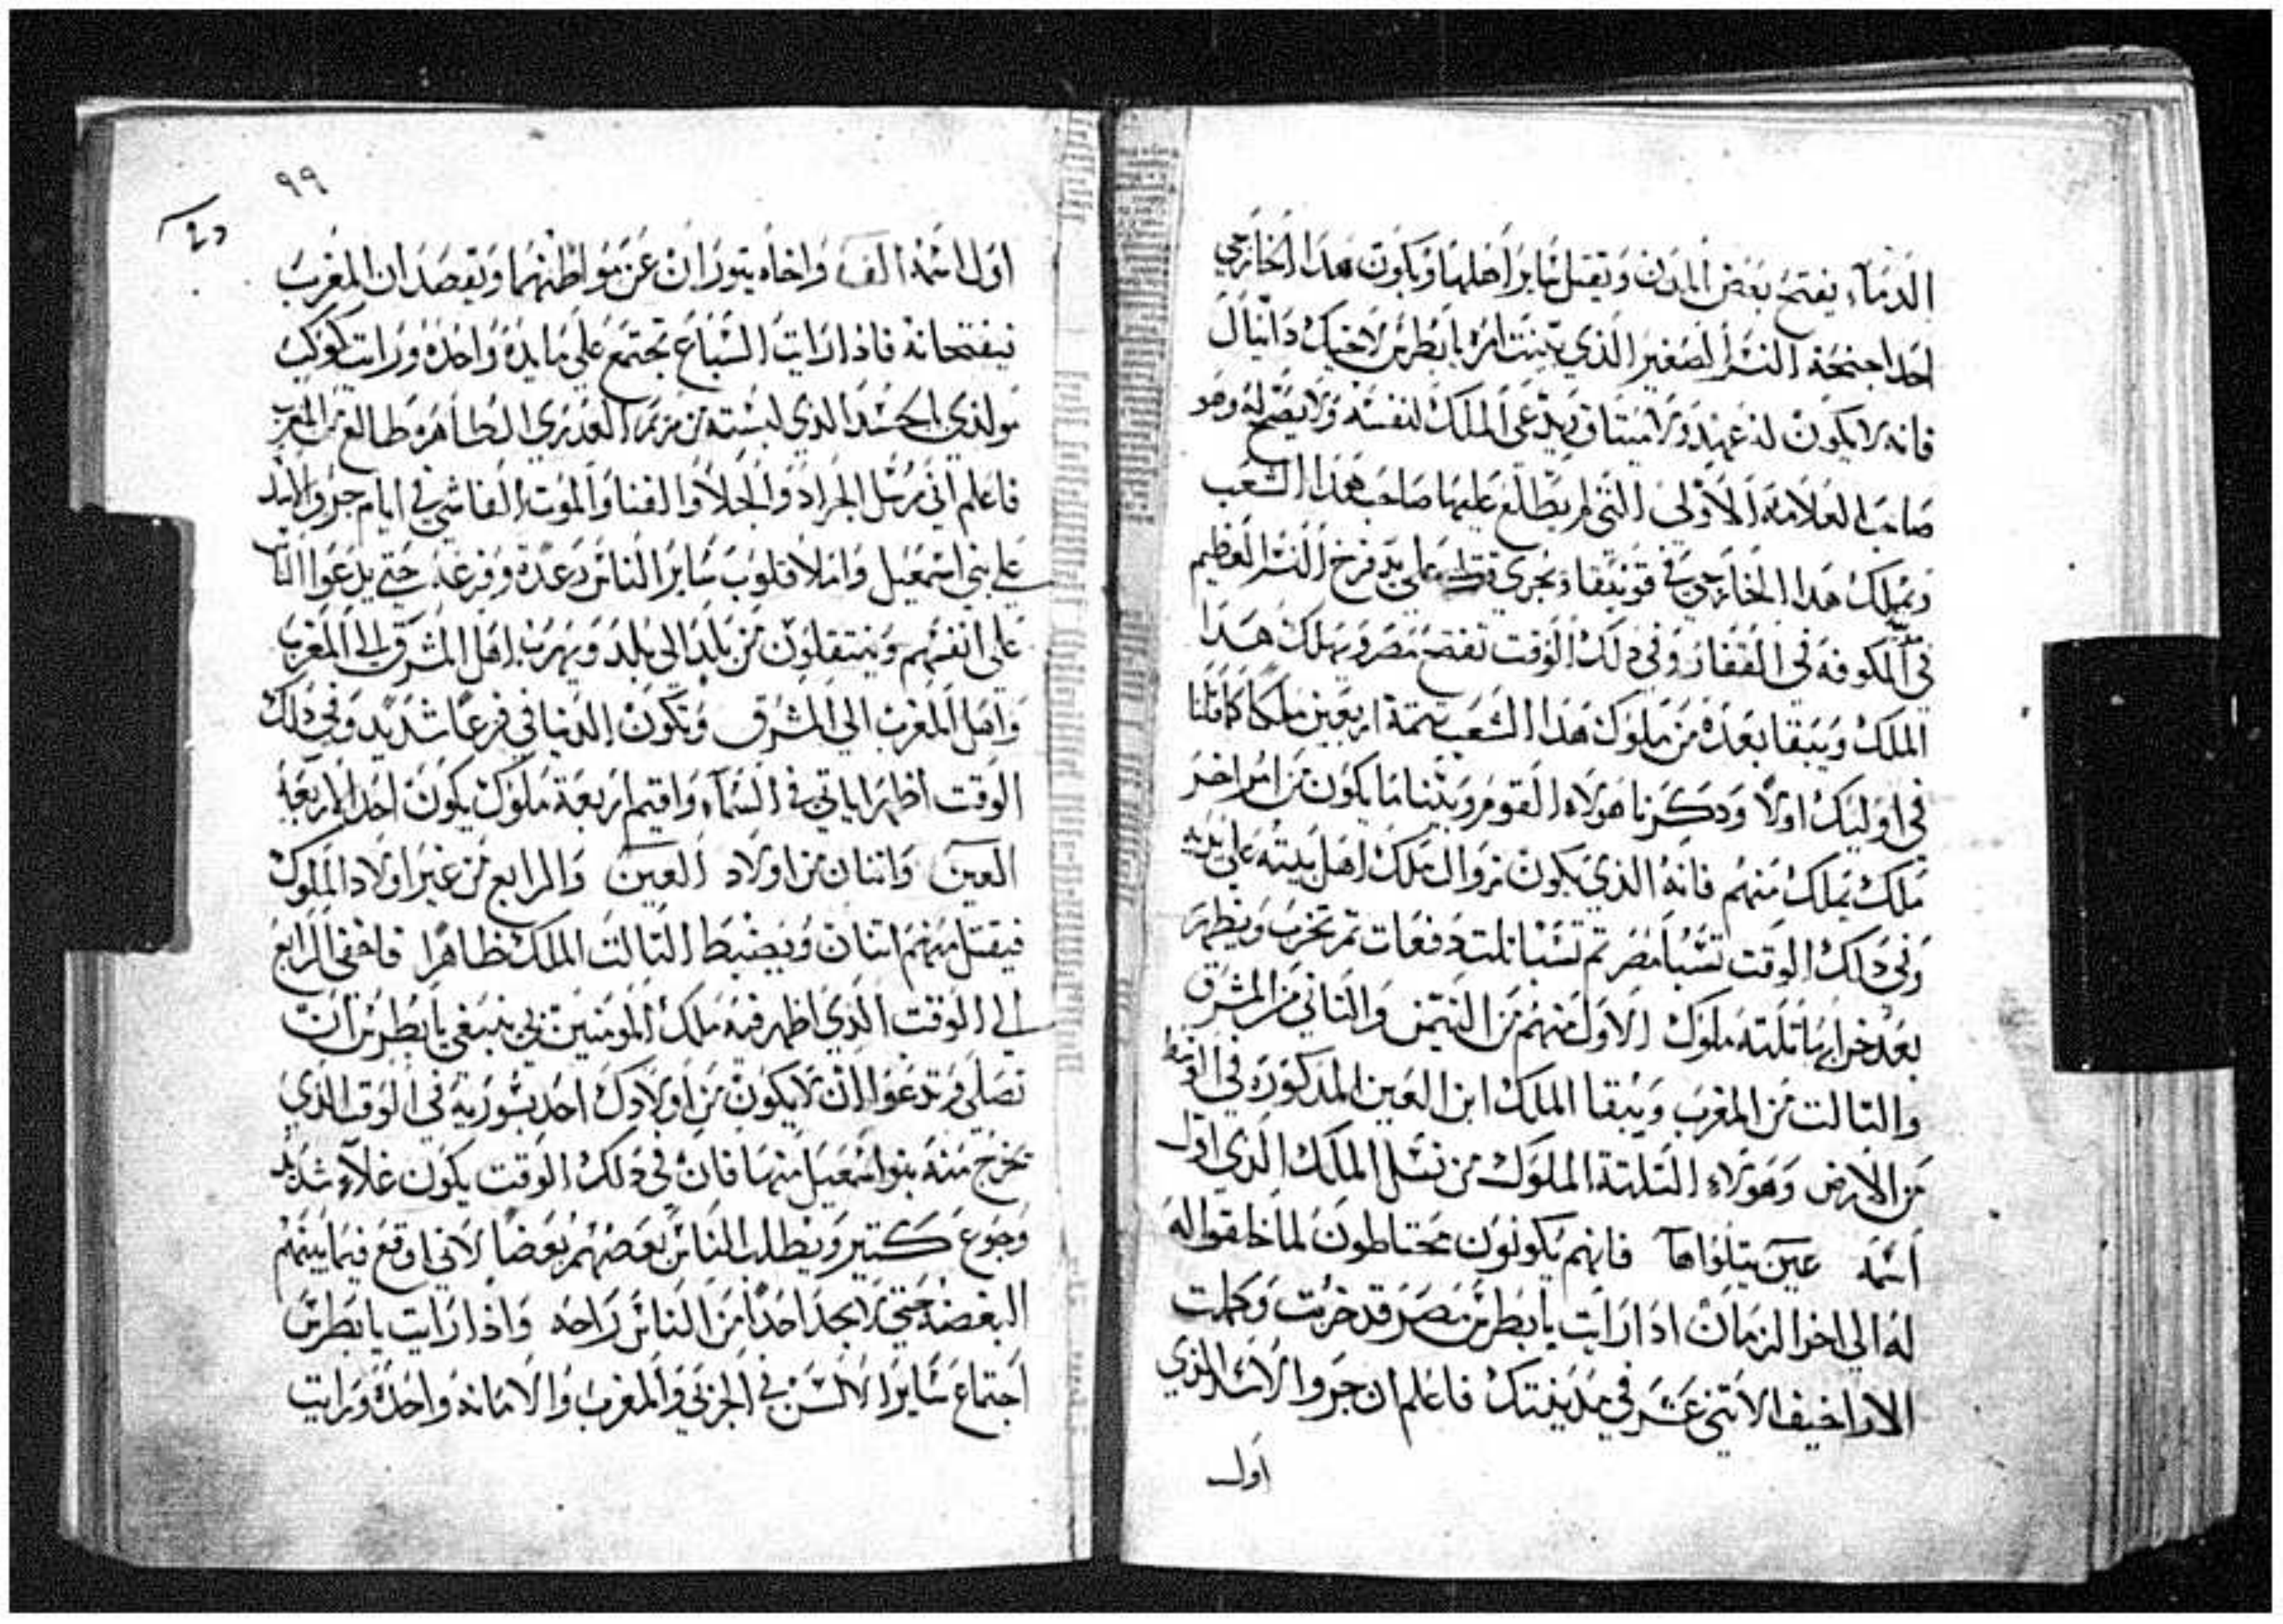 الدماء يفتح بعض المدن ويقتل ساير اهلها ويكون هدا الخارجي
احد اجنحة النسر الصغير الذي بينت امره يا بطرس لاخيك دانيال
فانه لا يكون له عهد ولا ميتاق يدعي الملك لنفسه ولا يصح له وهو
صاحب العلامة الاولى التي لم يطلع عليها صاحب هدا الشعب
ويملك هدا الخارجي في قوتيقا ويجري على يد فرخ النسر العظيم
في الكوفه في القفار وفي دلك الوقت تفتح مصر ويهلك هدا
الملك ويبقا بعده من ملوك هدا الشعب تتمة اربعين ملكا كاملنا
في اوليك اولا ودكرنا هولاء القوم وبينا ما يكون من امر اخر
ملك يملك منهم فانه الذي يكون زوال ملك اهل بيته على يديه
وفي دلك الوقت تسبا مصر تم تسبا تلت دفعات تم تخرب ويظهر
بعد خرابها تلته ملوك الاول منهم من التيمن والتاني من المشرق
والتالت من المغرب ويبقا الملك ابن العين المدكوره في الوسط
من الارض وهولاء التلتة الملوك من نسل الملك الذي اول
اسمه عين يتلواها فانهم يكونون محتاطون لما خلقوا له
له الى اخر الزمان ادا رايت يا بطرس مصر قد خربت وكملت
الاراخيف الاتني عشر في مدينتك فاعلم ان جروا الاسد الذي
اول
٩٩
اول اسمه الف واخاه يتوران عن مواطنهما ويقصدان المغرب
فيفتحانه فاذا رايت السباع تجتمع على مايده واحده ورايت كوكب
مولدي الجسد الذي لبسته من مريم العدرى الطاهره طالع من المغرب
فاعلم اني مرسل الجراد والجلا والفنا والموت الفاشي في ايام جرو الاسد
على بني اسمعيل واملا قلوب ساير الناس رعدة وفزعة حتى يدعوا الناس
على انفسهم وينتقلون من بلد الى بلد ويهرب اهل المشرق الى المغرب
واهل المغرب الى المشرق وتكون الدنيا في فزعا شديد وفي دلك
الوقت اظهر اياتي في السماء واقيم اربعة ملوك يكون احد الاربعة
العين واتنان من اولاد العين والرابع من غير اولاد الملوك
فيقتل منهم اتنان ويضبط التالت الملك ظاهرا فاخفي الرابع
الى الوقت الذي اظهر فيه ملك المومنين بي ينبغي يا بطرس ان
تصلي وتدعوا ان لا يكون من اولادك احد بسورية في الوقت الذي
تخرج منه بنو اسمعيل منها فان في دلك الوقت يكون غلاء شديد
وجوع كتير ويطلب الناس بعضهم بعضا لاني اوقع فيما بينهم
البغضة حتى لا يجد احدا من الناس راحه واذا رايت يا بطرس
اجتماع ساير الالسن في الجزبي والمغرب والامانة واحدة ورايت